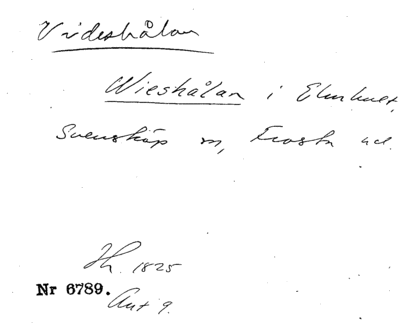 Videshålan
Wieshålan i Elmhult,
Svensköp sn, Frosta hd.
Hh. 1825
Nr 6789.
Ant 9.